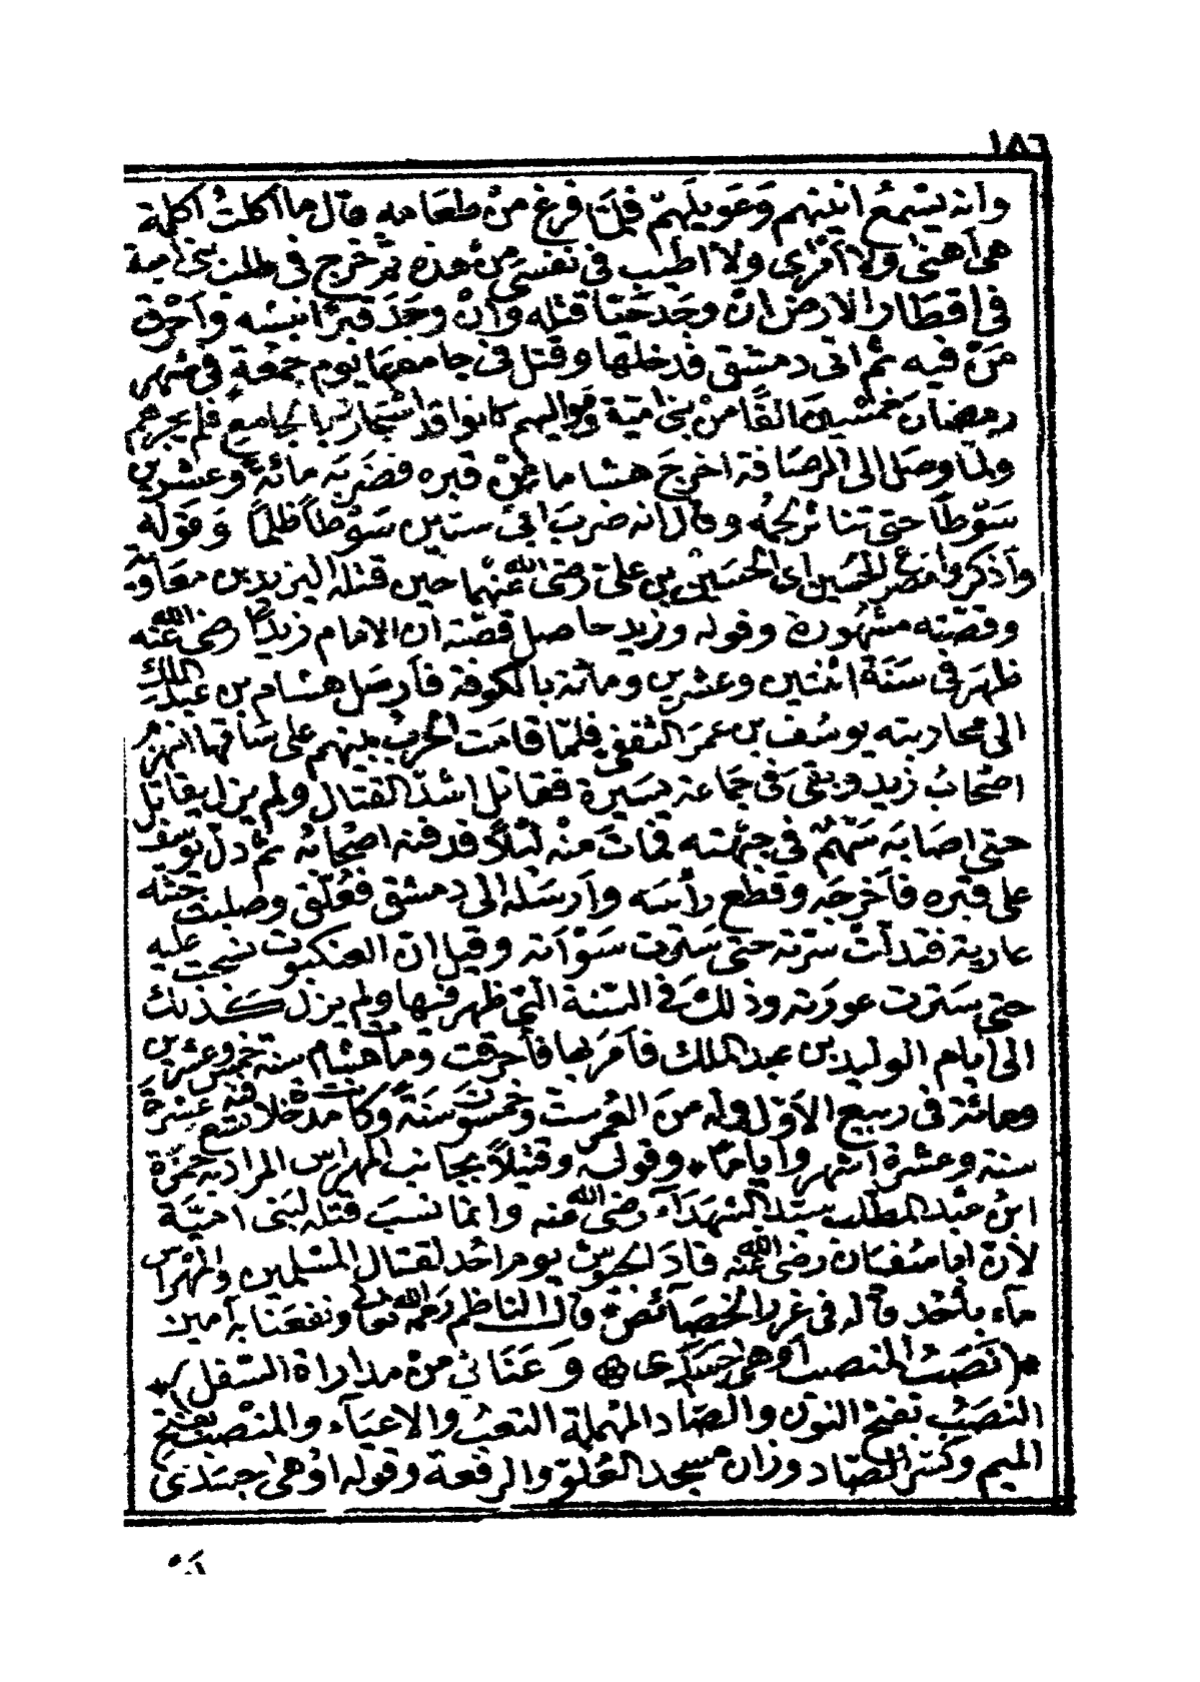 ١٨٦
وأنه يسمع أنينهم وعويلهم فلما فرغ من طعامه قال ما أكلت أكلة
هي أهنى ولا أمرى ولا أطيب في نفسي من هذه ثم خرج في طلب بني أمية
في اقطار الارض ان وجد حيا قتله وان وجد قبرا نبشه وأحرق
من فيه ثم اتى دمشق فدخلها وقتل في جامعها يوم جمعة في شهر
رمضان خمسين الفا من بني امية ومواليهم كانوا قد استجاروا بالجامع فلم يجرهم
ولما وصل الى الرصافة اخرج هشاما من قبره فضربه مائة وعشرين
سوطا حتى تناثر لحمه وقال انه ضرب ابي ستين سوطا ظلما وقوله
واذكروا مصرع الحسين اى الحسين بن علي رضي الله عنهما حين قتله اليزيد بن معاوية
وقصته مشهورة وقوله وزيد حاصل قصته ان الامام زيدا رضي الله عنه
ظهر في سنة اثنتين وعشرين ومائة بالكوفة فأرسل هشام بن عبد الملك
الى محاربته يوسف بن عمر الثقفي فلما قامت الحرب بينهم على ساقها انهزم
اصحاب زيد وبقي في جماعة يسيرة فقاتل اشد القتال ولم يزل يقاتل
حتى اصابه سهم في جبهته فمات منه ليلا فدفنه اصحابه ثم دل يوسف
على قبره فأخرجه وقطع رأسه وأرسله الى دمشق فعلق وصلبت جثته
عارية فتدلت سرته حتى سترت سوأته وقيل ان العنكبوت نسجت عليه
حتى سترت عورته وذلك في السنة التي ظهر فيها ولم يزل كذلك
الى أيام الوليد بن عبد الملك فأمر بها فأحرقت ومات هشام سنة خمس وعشرين
ومائة في ربيع الاول وله من العمر ست وخمسون سنة وكانت مدة خلافته تسع عشرة
سنة وعشرة أشهر وأياما * وقوله وقتيلا بجانب المهراس المراد به حمزة
ابن عبد المطلب سيد الشهدآء رضي الله عنه وانما نسب قتله لبني امية
لأن ابا سفيان رضي الله عنه قاد الجيوش يوم احد لقتال المسلمين والمهراس
مآء بأحد قاله في غرر الخصآئص * قال الناظم رحمه الله تعالى ونفعنا به آمين
*(نصب المنصب أوهى جسدى ۞ وعنائي من مداراة السفل)*
النصب بفتح النون والصاد المهملة التعب والاعيآء والمنصب بفتح
الميم وكسر الصاد وزان مسجد العلو والرفعة وقوله اوهى جسدى